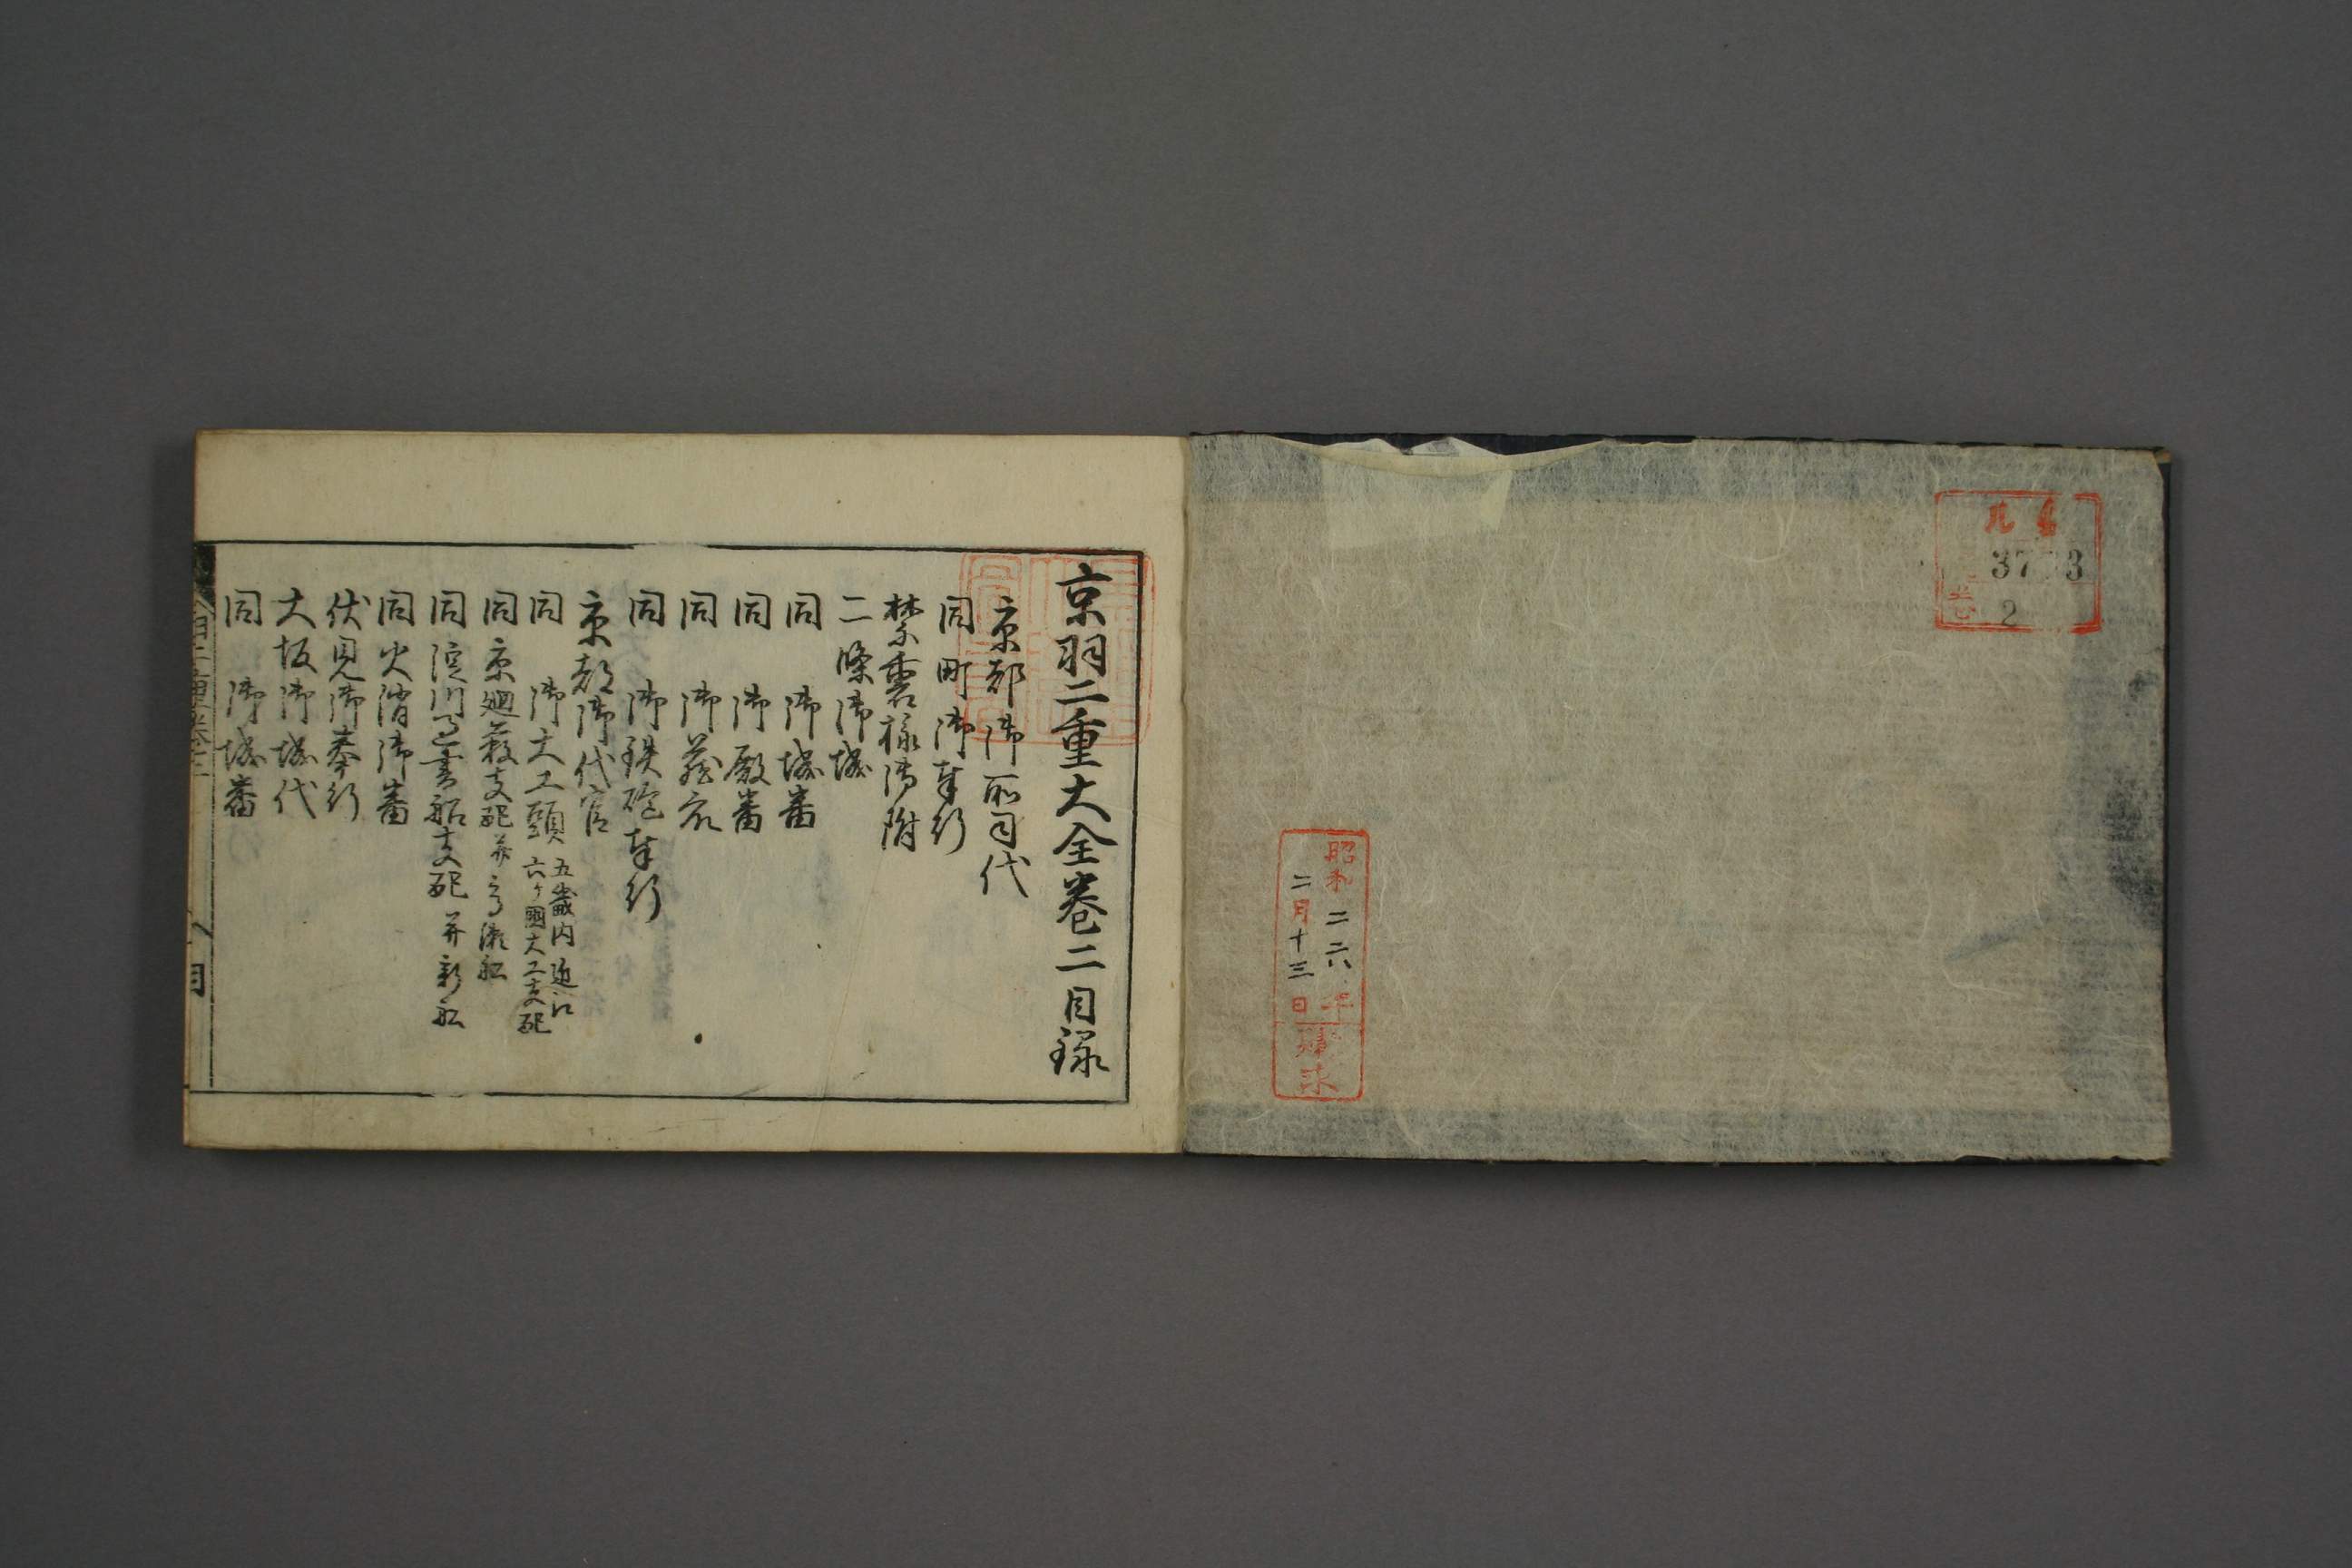 3773
2
昭和二六年
二月十三日
購求
京羽二重大全卷二目録
京都御所司代
同町御奉行
禁裏様御附
二條御城
同 御城番
同 御殿番
同 御蔵衆
同 御鉄砲奉行
京都御代官
同 御大工頭 五畿内近江
六ヶ國大工支配
同京廻藪支配并高瀬船
同淀川過書船支配并新船
同火消御番
伏見御奉行
大坂御城代
同 御城番
目